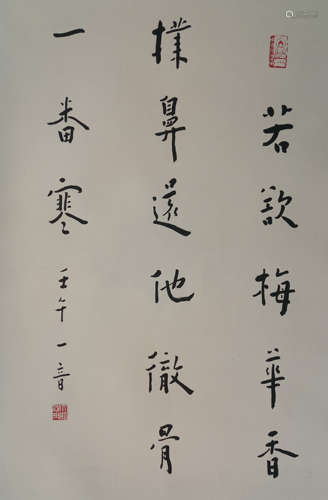 若欲梅華香
撲鼻還他徹骨
一番寒
壬午一音